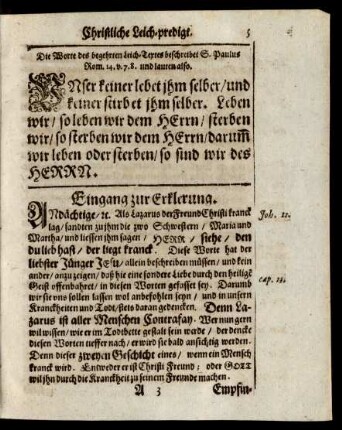 Christliche Leich-predigt. 5
Die Worte des begehrten Leich-Textes beschreibet S. Paulus
Rom. 14. v. 7. 8. und lauten also.
UNser keiner lebet jhm selber/und
keiner stirbet jhm selber. Leben
wir/so leben wir dem HErrn/ sterben
wir/so sterben wir dem HErrn/darum̃
wir leben oder sterben/ so sind wir des
HERRN.
Eingang zur Erklerung.
ANdächtige/ ꝛc. Als Lazarus der Freund Christi kranck
lag/sandten zu jhm die zwo Schwestern/ Maria und
Martha/und liessen jhm sagen/ HERR/ siehe/ den
du lieb hast/ der ligt kranck. Diese Worte hat der
liebster Jünger JEsu/allein beschreiben müssen/ und kein
ander/anzuzeigen/daß hie eine sondere Liebe durch den heiligẽ
Geist offenbahret/ in diesen Worten gefasset sey. Darumb
wir sie uns sollen lassen wol anbefohlen seyn/ und in unsern
Kranckheiten und Todt/stets daran gedencken. Denn La-
zarus ist aller Menschen Conterafay. Wer nun gern
wil wissen/wie er im Todtbette gestalt sein werde/ der dencke
diesen Worten tieffer nach/er wird sie bald ansichtig werden.
Denn dieser zweyen Geschicht eines/ wenn ein Mensch
kranck wird. Entweder er ist Christi Freund: oder GOTT
wil jhn durch die Kranckheit zu seinem Freunde machen.
Joh. 11.
cap. 13.
A 3 Empfin-